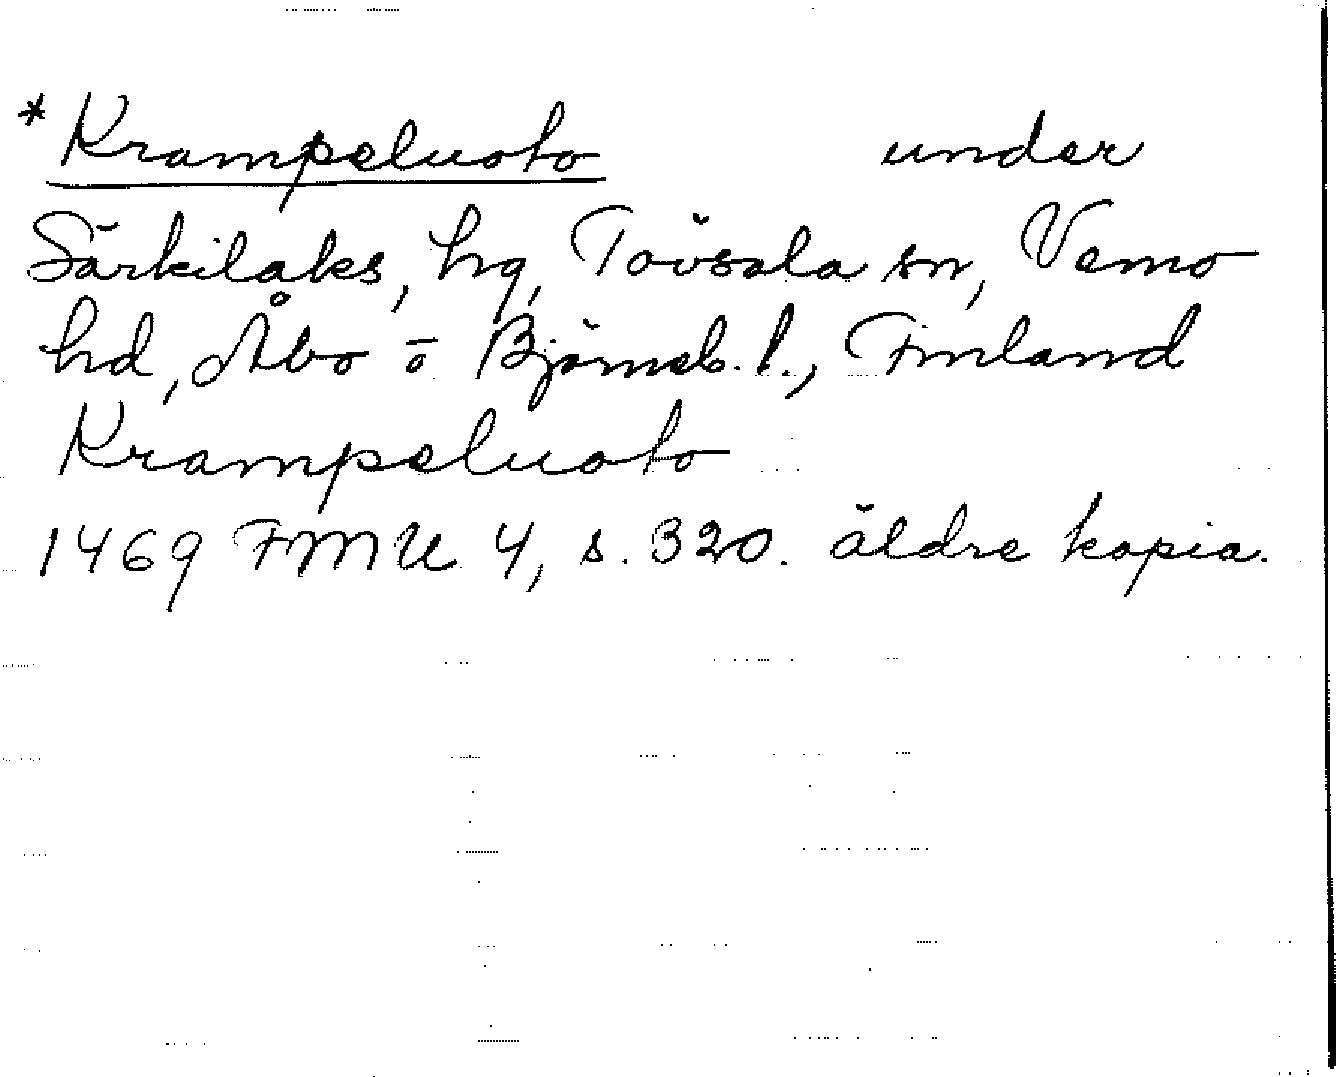 * Krampeluoto under
Särkilaks, hg, Tövsala sn, Vemo
hd, Åbo o Björneb. l., Finland
Krampeluoto
1469 FMU 4, s. 320. äldre kopia.